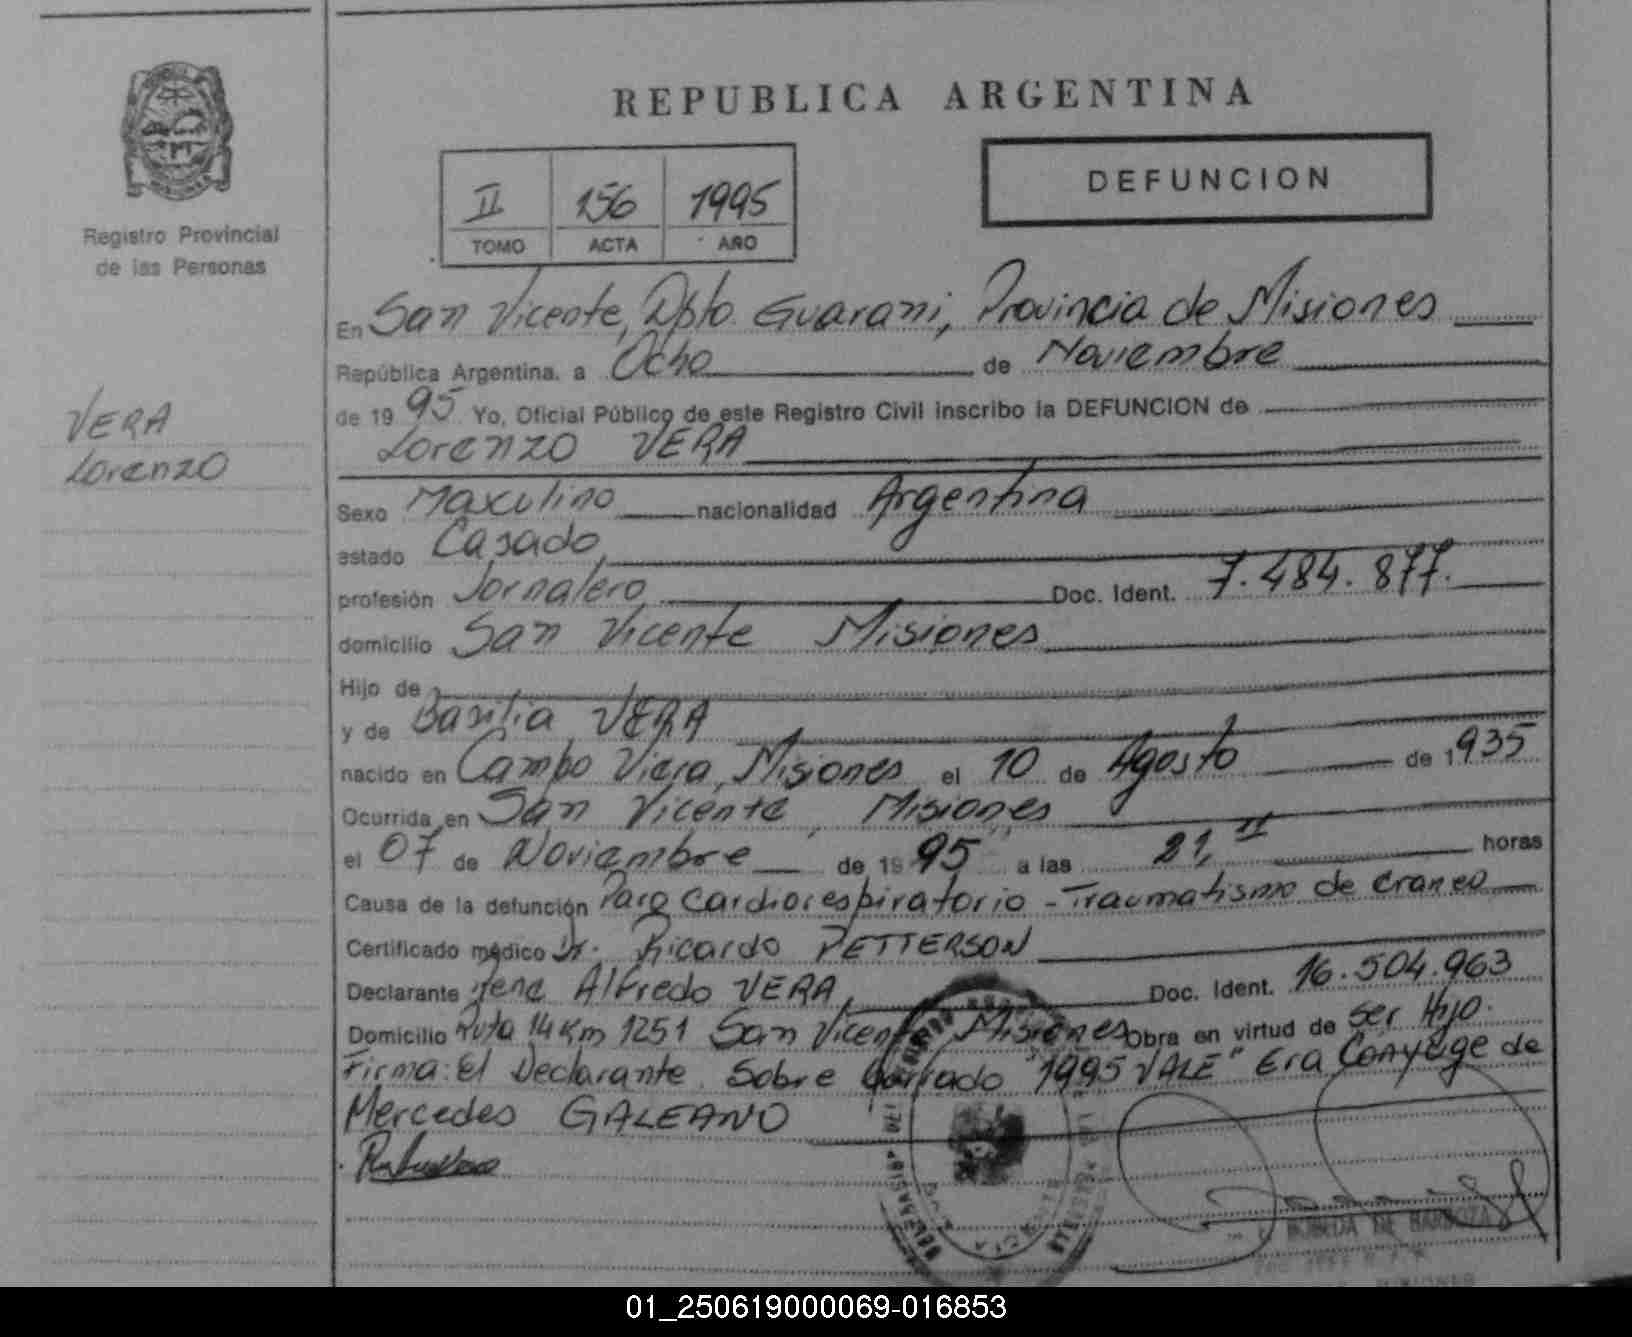 REPUBLICA ARGENTINA
DEFUNCION
II 156 1995
TOMO ACTA AÑO
Registro Provincial
de las Personas
VERA
Lorenzo
En San Vicente, Dpto. Guarani, Provincia de Misiones
República Argentina, a Ocho de Noviembre
de 1995 Yo, Oficial Público de este Registro Civil inscribo la DEFUNCION de
Lorenzo VERA
Sexo Masculino nacionalidad Argentina
estado Casado
profesión Jornalero Doc. Ident. 7.484.877.
domicilio San Vicente Misiones
Hijo de
y de Basilia VERA
nacido en Campo Viera, Misiones el 10 de Agosto de 1935
Ocurrida en San Vicente, Misiones
el 07 de Noviembre de 1995 a las 21, horas
Causa de la defunción Paro Cardiorespiratorio - Traumatismo de craneo
Certificado médico Dr. Ricardo PETTERSON
Declarante Alfredo VERA, Doc. Ident. 16.504.963
Domicilio Ruta 14 Km 1251 San Vicente Misiones Obra en virtud de Ser Hijo.
Firma: El Declarante. Sobre borrado "1995 VALE" Era Conyuge de
Mercedes GALEANO
DE BARBOZA
MISIONES
01_250619000069-016853